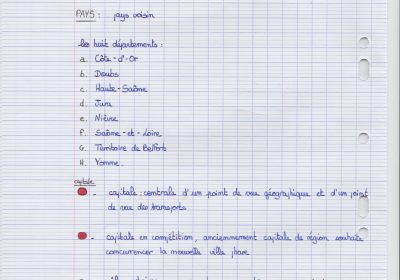 PAYS : pays voisin
les huit départements :
a. Côte-d'Or
b. Doubs
c. Haute-Saône
d. Jura
e. Nièvre
F. Saône-et-Loire
G. Territoire de Belfort
H. Yonne.
capitale
- capitale : centrale d'un point de vue géographique et d'un point
de vue des transports
- capitale en compétition, anciennement capitale de région souhaite
concurrencer la nouvelle ville phare